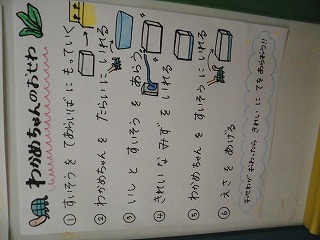 わかめちゃんのおせわ
① すいそう を てあらいば に もっていく
② わかめちゃん を たらい に いれる
③ いし と すいそう を あらう
④ きれいな みず を いれる
⑤ わかめちゃん を すいそう に いれる
⑥ えさ を あげる
おせわが おわったら きれいに てを あらおう!!